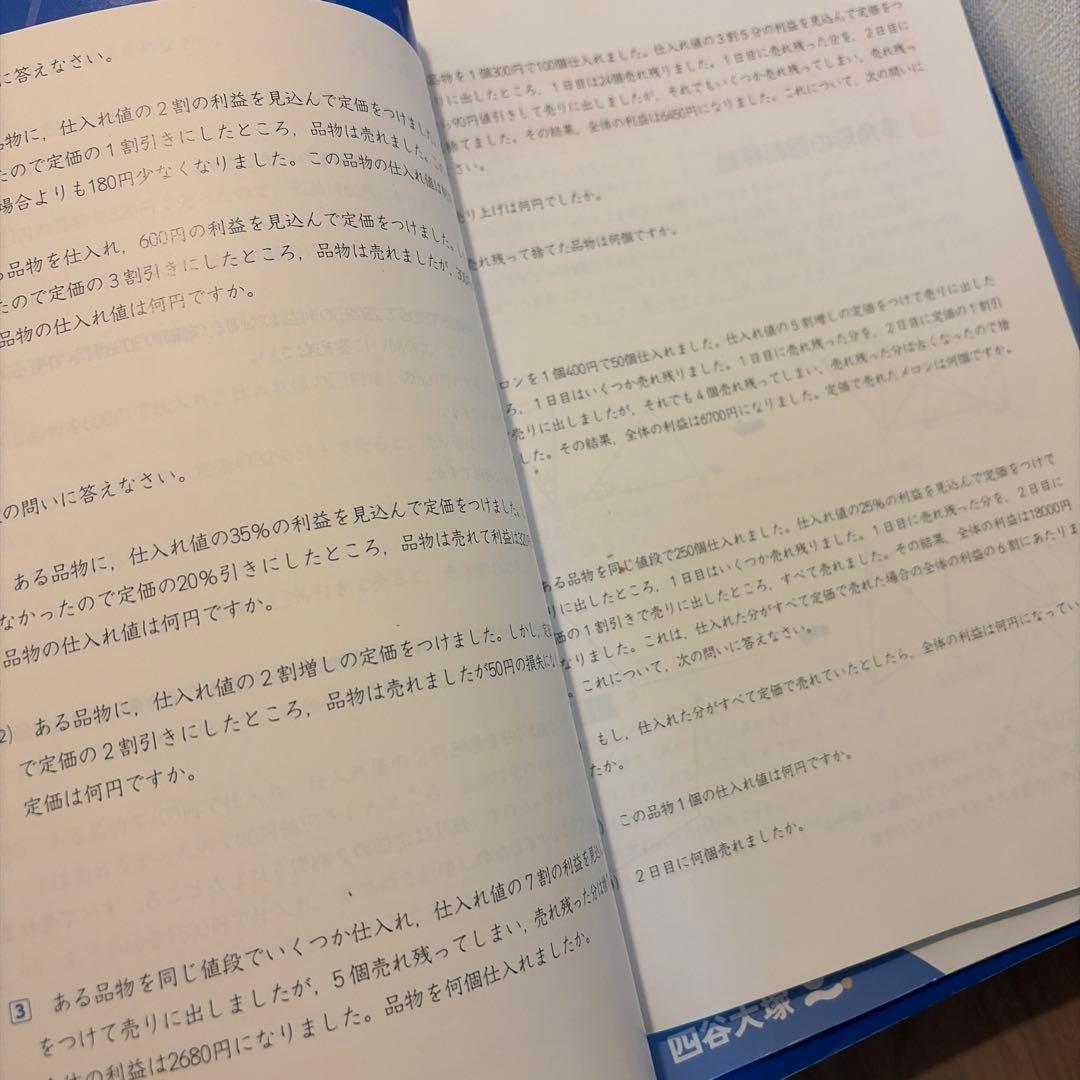 に答えなさい。
品物に，仕入れ値の２割の利益を見込んで定価をつけまし
たので定価の１割引きにしたところ，品物は売れました。
場合よりも180円少なくなりました。この品物の仕入れ値は
品物を仕入れ，600円の利益を見込んで定価をつけました。
たので定価の３割引きにしたところ，品物は売れましたが，
品物の仕入れ値は何円ですか。
の問いに答えなさい。
ある品物に，仕入れ値の35％の利益を見込んで定価をつけました。
なかったので定価の20％引きにしたところ，品物は売れて利益は
品物の仕入れ値は何円ですか。
2) ある品物に，仕入れ値の２割増しの定価をつけました。しかし，
で定価の２割引きにしたところ，品物は売れましたが50円の損失に
定価は何円ですか。
3 ある品物を同じ値段でいくつか仕入れ，仕入れ値の７割の利益を見込
をつけて売りに出しましたが，５個売れ残ってしまい，売れ残った分は
の利益は2680円になりました。品物を何個仕入れましたか。
品物を１個300円で100個仕入れました。仕入れ値の３割５分の利益を見込んで定価をつ
りに出したところ，１日目は24個売れ残りました。１日目に売れ残った分を，２日目に
90円値引きして売りに出しましたが，それでもいくつか売れ残ってしまい，売れ残っ
捨てました。その結果，全体の利益は6450円になりました。これについて，次の問いに
さい。
売り上げは何円でしたか。
売れ残って捨てた品物は何個ですか。
ロンを１個400円で50個仕入れました。仕入れ値の５割増しの定価をつけて売りに出した
ろ，１日目はいくつか売れ残りました。１日目に売れ残った分を，２日目に定価の１割引
売りに出しましたが，それでも４個売れ残ってしまい，売れ残った分は古くなったので捨
した。その結果，全体の利益は6700円になりました。定価で売れたメロンは何個ですか。
ある品物を同じ値段で250個仕入れました。仕入れ値の25％の利益を見込んで定価をつけて
りに出したところ，１日目はいくつか売れ残りました。１日目に売れ残った分を，２日目に
価の１割引きで売りに出したところ，すべて売れました。その結果，全体の利益は18000円
なりました。これは，仕入れた分がすべて定価で売れた場合の全体の利益の６割にあたりま
。これについて，次の問いに答えなさい。
もし，仕入れた分がすべて定価で売れていたとしたら，全体の利益は何円になってい
たか。
この品物１個の仕入れ値は何円ですか。
２日目に何個売れましたか。
四谷大塚